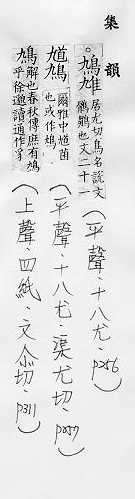 集韻
鳩
居尤切鳥名說文
鶻鵃也文二十一
(平聲、十八尤、P256)
馗鳩
爾雅中馗菌
也或作鳩
(平聲、十八尤、渠尤切、P257)
鳩
解也春秋傳庶有鳩
乎徐邈讀通作豸
(上聲、四紙、丈尒切、P311)